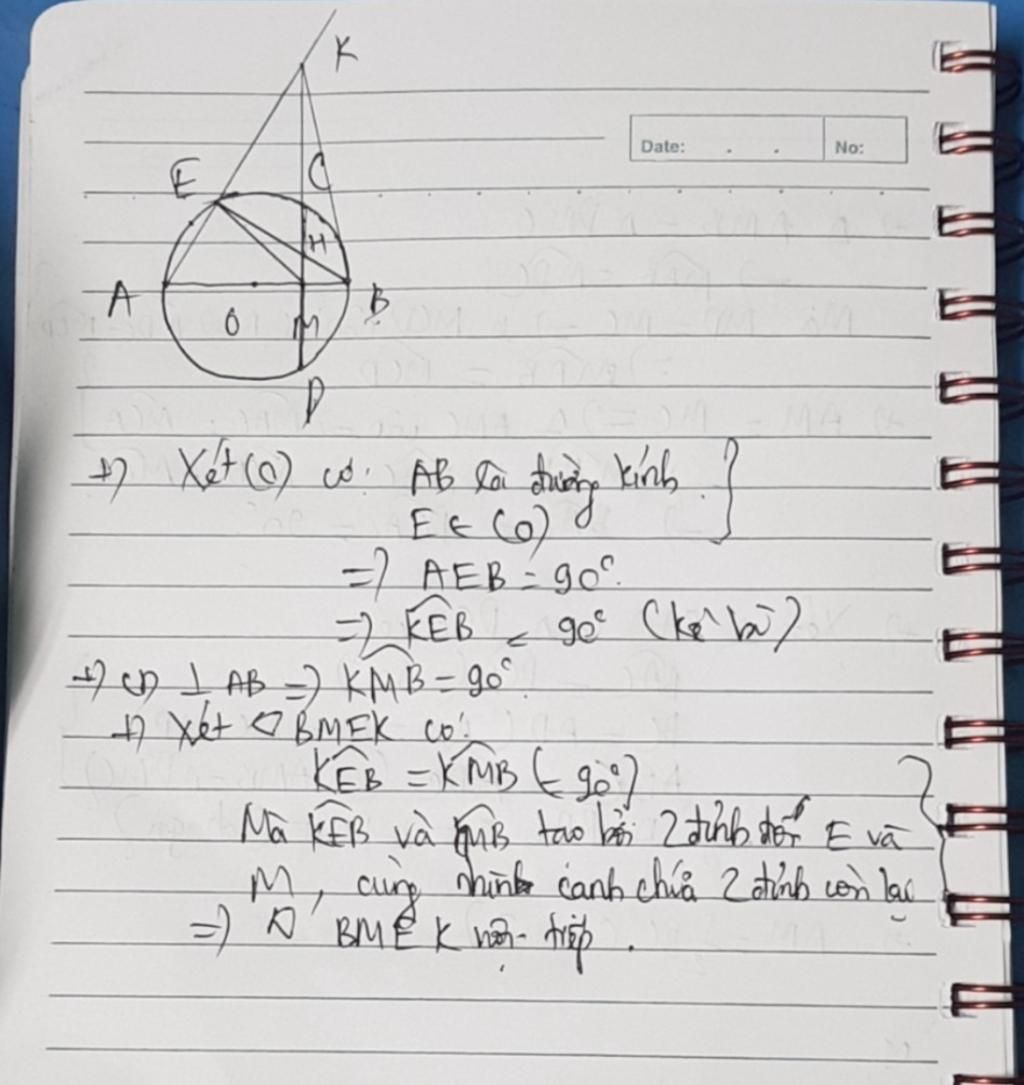 K
Date: . . No:
E C
H
A B
O M
D
+) Xét (O) có: AB là đường kính
E ∈ (O)
=> AEB = 90°.
=> KEB = 90° (kề bù)
+) CD ⊥ AB => KMB = 90°
+) Xét BMEK có:
KEB = KMB (= 90°)
Mà KEB và KMB tạo bởi 2 đỉnh E và
M, cùng nhìn cạnh chứa 2 đỉnh còn lại
=> BMEK nội tiếp.